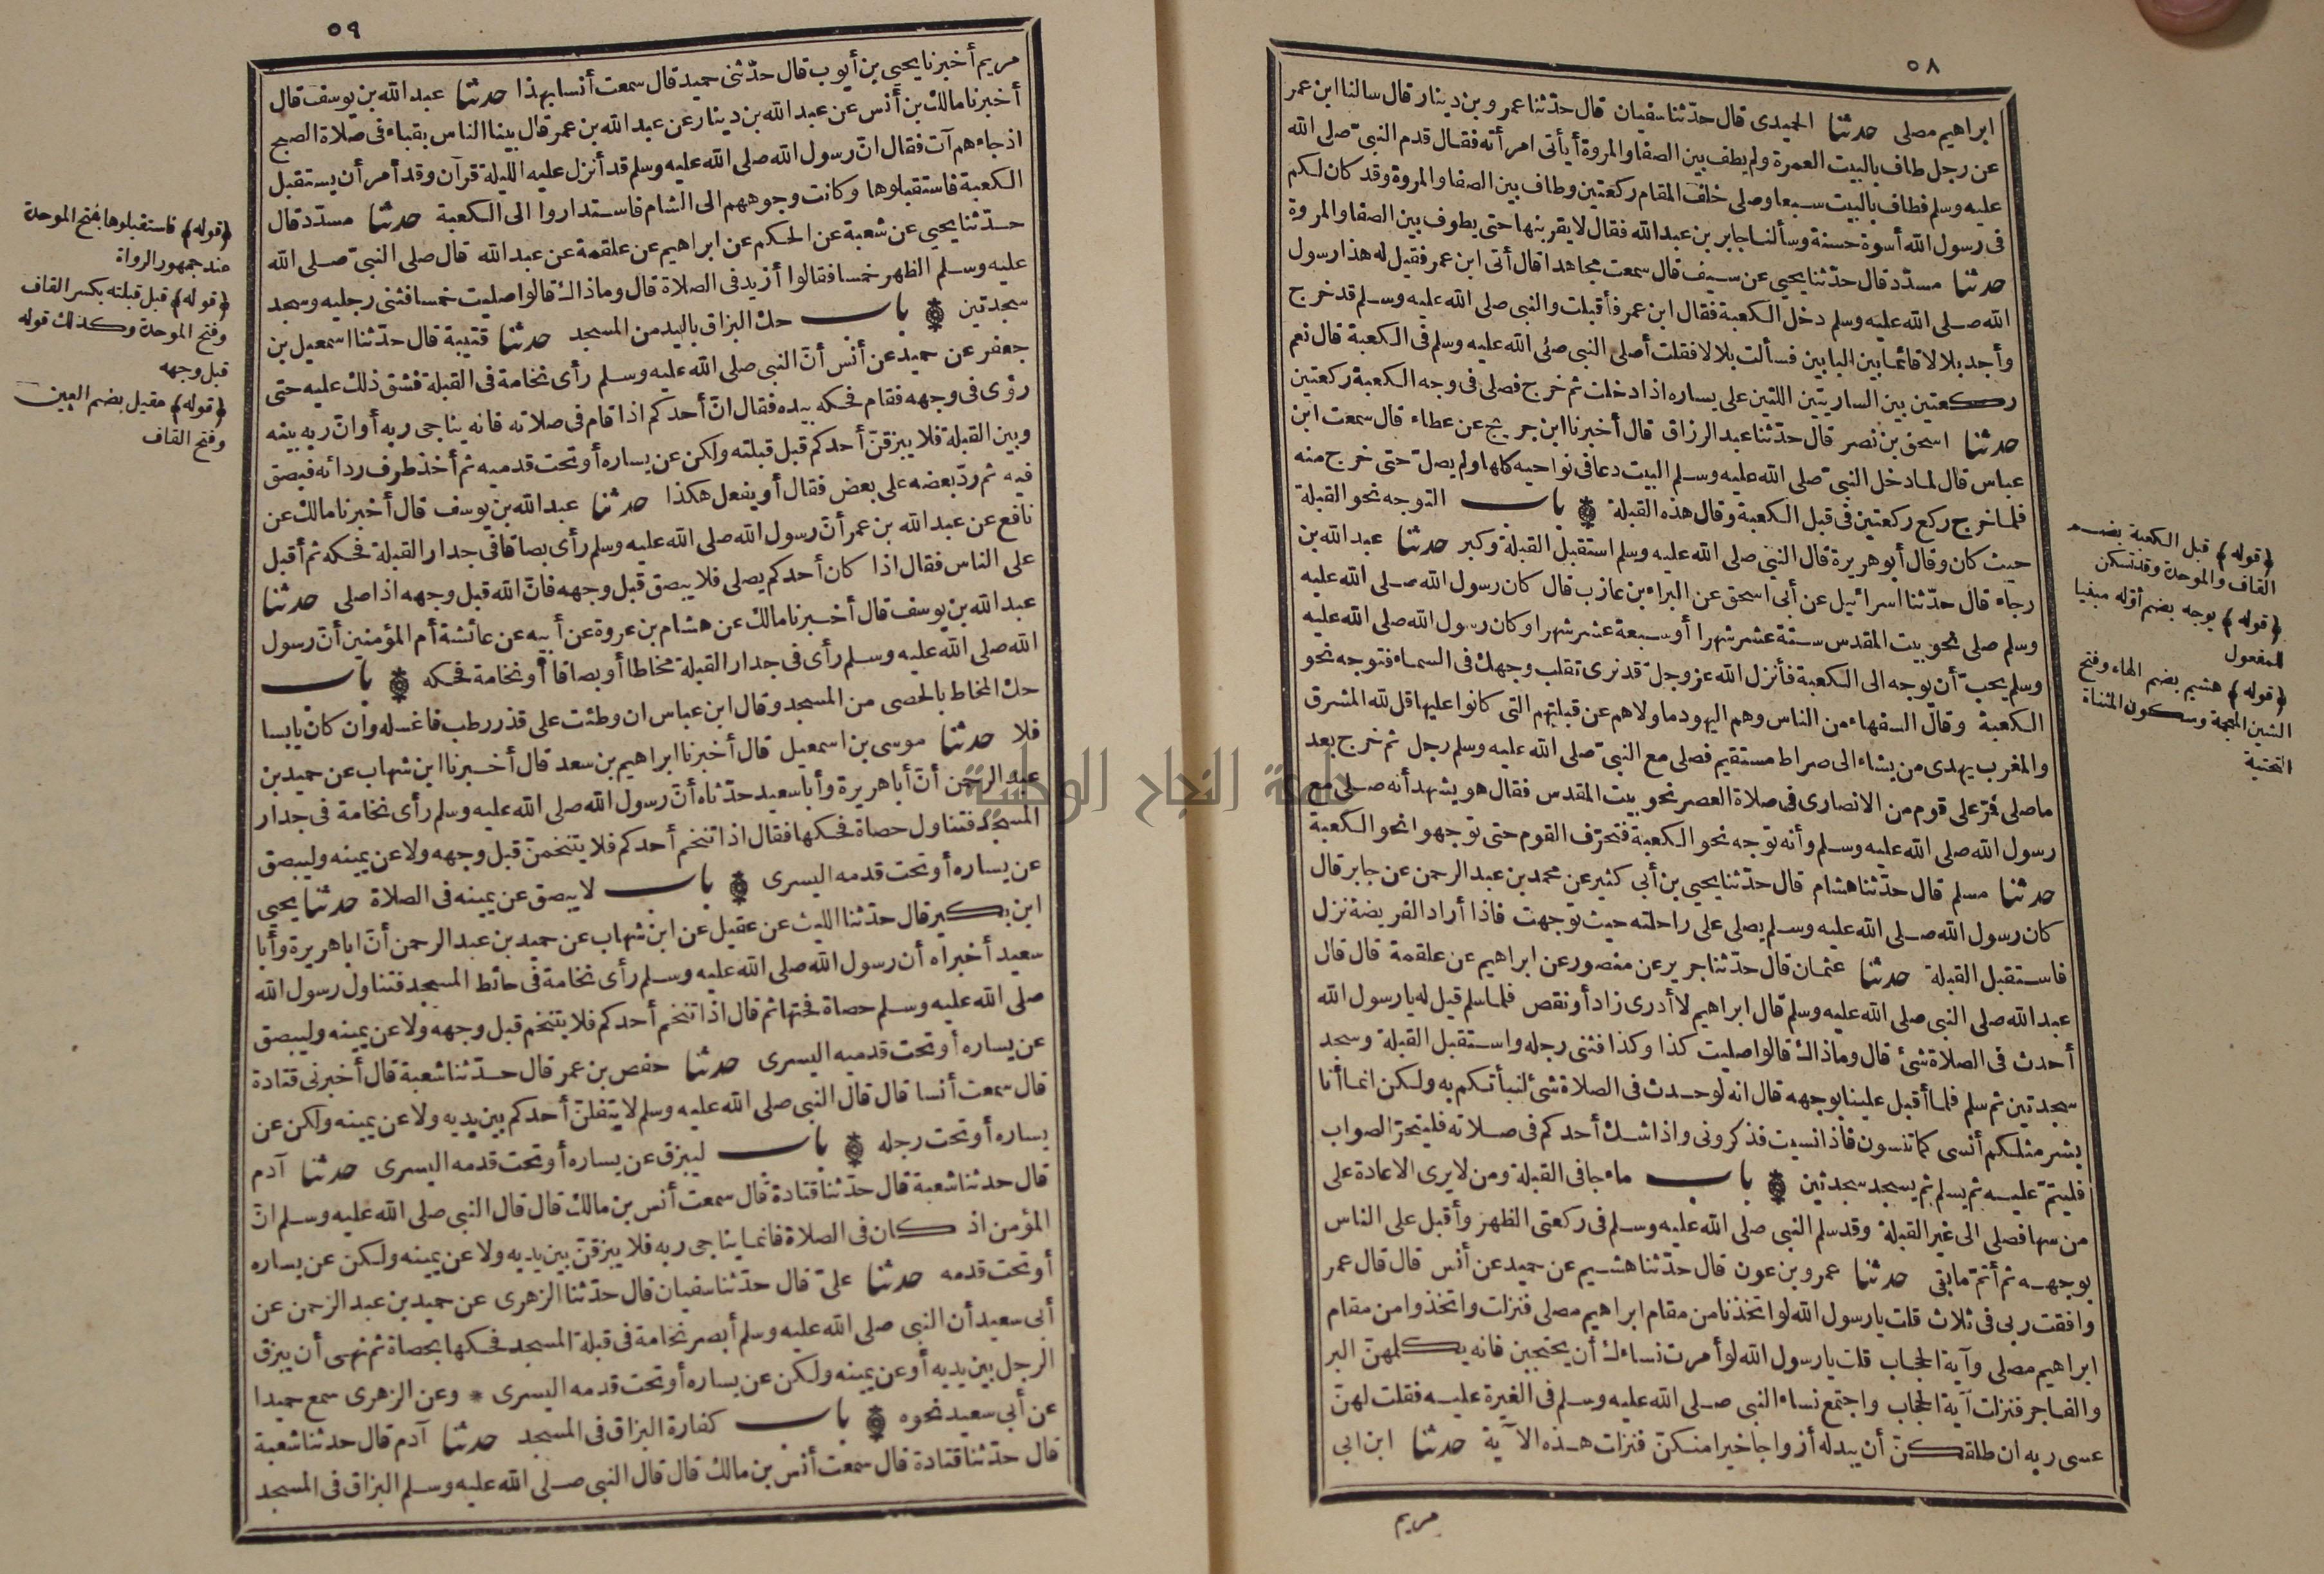 ٥٨
ابراهيم مصلى حدثنا الحميدى قال حدّثنا سفيان قال حدّثنا عمرو بن دينار قال سالنا ابن عمر
عن رجل طاف بالبيت العمرة ولم يطف بين الصفا والمروة أيأتى امرأته فقال قدم النبىّ صلى الله
عليه وسلم فطاف بالبيت سبعا وصلى خلف المقام ركعتين وطاف بين الصفا والمروة وقد كان لكم
فى رسول الله أسوة حسنة وسألنا جابر بن عبد الله فقال لا يقربنها حتى يطوف بين الصفا والمروة
حدثنا مسدّد قال حدّثنا يحيى عن سيف قال سمعت مجاهدا قال أتى ابن عمر فقيل له هذا رسول
الله صلى الله عليه وسلم دخل الكعبة فقال ابن عمر فأقبلت والنبى صلى الله عليه وسلم قد خرج
وأجد بلالا قائما بين البابين فسألت بلالا فقلت أصلى النبى صلى الله عليه وسلم فى الكعبة قال نعم
ركعتين بين الساريتين اللتين على يساره اذا دخلت ثم خرج فصلى فى وجه الكعبة ركعتين
حدثنا اسحق بن نصر قال حدّثنا عبد الرزاق قال أخبرنا ابن جريج عن عطاء قال سمعت ابن
عباس قال لما دخل النبىّ صلى الله عليه وسلم البيت دعا فى نواحيه كلها ولم يصلّ حتى خرج منه
فلما خرج ركع ركعتين فى قبل الكعبة وقال هذه القبلة باب التوجه نحو القبلة
حيث كان وقال أبو هريرة قال النبى صلى الله عليه وسلم استقبل القبلة وكبر حدثنا عبد الله بن
رجاء قال حدّثنا اسرائيل عن أبى اسحق عن البراء بن عازب قال كان رسول الله صلى الله عليه
وسلم صلى نحو بيت المقدس ستة عشر شهرا أو سبعة عشر شهرا وكان رسول الله صلى الله عليه
وسلم يحبّ أن يوجه الى الكعبة فأنزل الله عز وجلّ قد نرى تقلب وجهك فى السماء فتوجه نحو
الكعبة وقال السفهاء من الناس وهم اليهود ما ولاهم عن قبلتهم التى كانوا عليها قل لله المشرق
والمغرب يهدى من يشاء الى صراط مستقيم فصلى مع النبىّ صلى الله عليه وسلم رجل ثم خرج بعد
ما صلى فمرّ على قوم من الانصارى فى صلاة العصر نحو بيت المقدس فقال هو يشهد أنه صلى مع
رسول الله صلى الله عليه وسلم وأنه توجه نحو الكعبة فتحرّف القوم حتى توجهوا نحو الكعبة
حدثنا مسلم قال حدّثنا هشام قال حدّثنا يحيى بن أبى كثير عن محمد بن عبد الرحمن عن جابر قال
كان رسول الله صلى الله عليه وسلم يصلى على راحلته حيث توجهت فاذا أراد الفريضة نزل
فاستقبل القبلة حدثنا عثمان قال حدّثنا جرير عن منصور عن ابراهيم عن علقمة قال قال
عبد الله صلى النبى صلى الله عليه وسلم قال ابراهيم لا أدرى زاد أو نقص فلما سلم قيل له يا رسول الله
أحدث فى الصلاة شئ قال وما ذاك قالوا صليت كذا وكذا فثنى رجله واستقبل القبلة وسجد
سجدتين ثم سلم فلما أقبل علينا بوجهه قال انه لو حدث فى الصلاة شئ لنبأتكم به ولكن انما أنا
بشر مثلكم أنسى كما تنسون فاذا نسيت فذكرونى واذا شك أحدكم فى صلاته فليتحرّ الصواب
فليتمّ عليه ثم يسلم ثم يسجد سجدتين باب ما جاء فى القبلة ومن لا يرى الاعادة على
من سها فصلى الى غير القبلة وقد سلم النبى صلى الله عليه وسلم فى ركعتى الظهر وأقبل على الناس
بوجهه ثم أتمّ ما بقى حدثنا عمرو بن عون قال حدّثنا هشيم عن حميد عن أنس قال قال عمر
وافقت ربى فى ثلاث قلت يا رسول الله لو اتخذنا من مقام ابراهيم مصلى فنزلت واتخذوا من مقام
ابراهيم مصلى وآية الحجاب قلت يا رسول الله لو أمرت نساءك أن يحتجبن فانه يكلمهنّ البر
والفاجر فنزلت آية الحجاب واجتمع نساء النبى صلى الله عليه وسلم فى الغيرة عليه فقلت لهنّ
عسى ربه ان طلقكنّ أن يبدله أزواجا خيرا منكنّ فنزلت هذه الآية حدثنا ابن ابى
مريم
﴿قوله﴾ قبل الكعبة بضم
القاف والموحدة وقد تسكن
﴿قوله﴾ يوجه بضم أوّله مبنيا
للمفعول
﴿قوله﴾ هشيم بضم الهاء وفتح
الشين المعجمة وسكون المثناة
التحتية
٥٩
مريم أخبرنا يحيى بن أيوب قال حدّثنى حميد قال سمعت أنسا بهذا حدثنا عبد الله بن يوسف قال
أخبرنا مالك بن أنس عن عبد الله بن دينار عن عبد الله بن عمر قال بينا الناس بقباء فى صلاة الصبح
اذ جاءهم آت فقال انّ رسول الله صلى الله عليه وسلم قد أنزل عليه الليلة قرآن وقد أمر أن يستقبل
الكعبة فاستقبلوها وكانت وجوههم الى الشام فاستداروا الى الكعبة حدثنا مسدّد قال
حدّثنا يحيى عن شعبة عن الحكم عن ابراهيم عن علقمة عن عبد الله قال صلى النبىّ صلى الله
عليه وسلم الظهر خمسا فقالوا أزيد فى الصلاة قال وما ذاك قالوا صليت خمسا فثنى رجليه وسجد
سجدتين باب حك البزاق باليد من المسجد حدثنا قتيبة قال حدّثنا اسمعيل بن
جعفر عن حميد عن أنس أنّ النبى صلى الله عليه وسلم رأى نخامة فى القبلة فشق ذلك عليه حتى
رؤى فى وجهه فقام فحكه بيده فقال انّ أحدكم اذا قام فى صلاته فانه يناجى ربه أو انّ ربه بينه
وبين القبلة فلا يبزقنّ أحدكم قبل قبلته ولكن عن يساره أو تحت قدميه ثم أخذ طرف ردائه فبصق
فيه ثم ردّ بعضه على بعض فقال أو يفعل هكذا حدثنا عبد الله بن يوسف قال أخبرنا مالك عن
نافع عن عبد الله بن عمر أنّ رسول الله صلى الله عليه وسلم رأى بصاقا فى جدار القبلة فحكه ثم أقبل
على الناس فقال اذا كان أحدكم يصلى فلا يبصق قبل وجهه فانّ الله قبل وجهه اذا صلى حدثنا
عبد الله بن يوسف قال أخبرنا مالك عن هشام بن عروة عن أبيه عن عائشة أم المؤمنين أنّ رسول
الله صلى الله عليه وسلم رأى فى جدار القبلة مخاطا أو بصاقا أو نخامة فحكه باب
حك المخاط بالحصى من المسجد وقال ابن عباس ان وطئت على قذر رطب فاغسله وان كان يابسا
فلا حدثنا موسى بن اسمعيل قال أخبرنا ابراهيم بن سعد قال أخبرنا ابن شهاب عن حميد بن
عبد الرحمن أنّ أبا هريرة وأبا سعيد حدّثاه أنّ رسول الله صلى الله عليه وسلم رأى نخامة فى جدار
المسجد فتناول حصاة فحكها فقال اذا تنخم أحدكم فلا يتنخمنّ قبل وجهه ولا عن يمينه وليبصق
عن يساره أو تحت قدمه اليسرى باب لا يبصق عن يمينه فى الصلاة حدثنا يحيى
ابن بكير قال حدّثنا الليث عن عقيل عن ابن شهاب عن حميد بن عبد الرحمن أنّ ابا هريرة وأبا
سعيد أخبراه أن رسول الله صلى الله عليه وسلم رأى نخامة فى حائط المسجد فتناول رسول الله
صلى الله عليه وسلم حصاة فحتها ثم قال اذا تنخم أحدكم فلا يتنخم قبل وجهه ولا عن يمينه وليبصق
عن يساره أو تحت قدميه اليسرى حدثنا حفص بن عمر قال حدّثنا شعبة قال أخبرنى قتادة
قال سمعت أنسا قال قال النبى صلى الله عليه وسلم لا يتفلنّ أحدكم بين يديه ولا عن يمينه ولكن عن
يساره أو تحت رجله باب ليبزق عن يساره أو تحت قدمه اليسرى حدثنا آدم
قال حدثنا شعبة قال حدّثنا قتادة قال سمعت أنس بن مالك قال قال النبى صلى الله عليه وسلم انّ
المؤمن اذ كان فى الصلاة فانما يناجى ربه فلا يبزقنّ بين يديه ولا عن يمينه ولكن عن يساره
أو تحت قدمه حدثنا علىّ قال حدّثنا سفيان قال حدّثنا الزهرى عن حميد بن عبد الرحمن عن
أبى سعيد أن النبى صلى الله عليه وسلم أبصر نخامة فى قبلة المسجد فحكها بحصاة ثم نهى أن يبزق
الرجل بين يديه أو عن يمينه ولكن عن يساره أو تحت قدمه اليسرى * وعن الزهرى سمع حميدا
عن أبى سعيد نحوه باب كفارة البزاق فى المسجد حدثنا آدم قال حدثنا شعبة
قال حدّثنا قتادة قال سمعت أنس بن مالك قال قال النبى صلى الله عليه وسلم البزاق فى المسجد
﴿قوله﴾ فاستقبلوها بفتح الموحدة
عند جمهور الرواة
﴿قوله﴾ قبل قبلته بكسر القاف
وفتح الموحدة وكذلك قوله
قبل وجهه
﴿قوله﴾ عقيل بضم العين
وفتح القاف
جامعة النجاح الوطنية